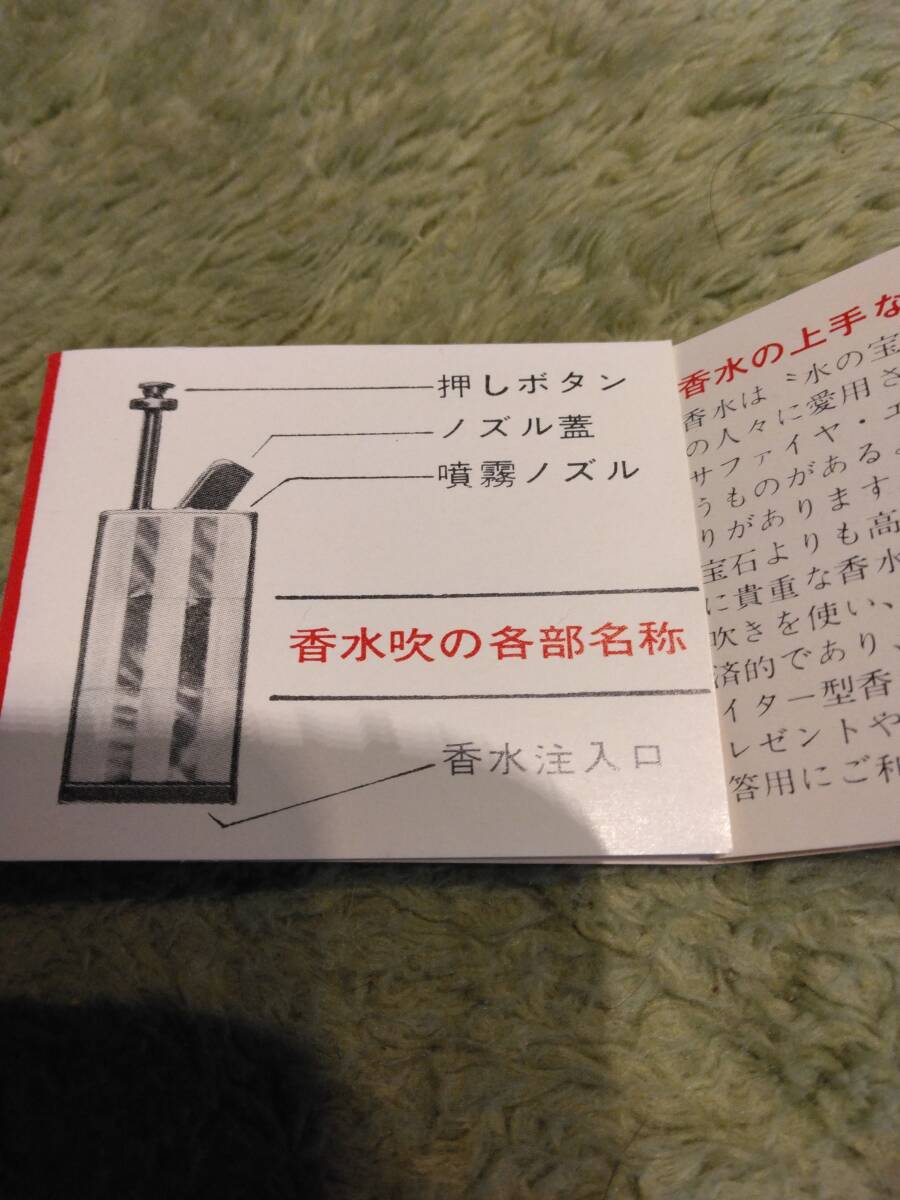 押しボタン
ノズル蓋
噴霧ノズル
香水吹の各部名称
香水注入口
香水の上手な
香水は〝水の宝
の人々に愛用さ
サファイヤ・エ
うものがある
りがあります
宝石よりも高
に貴重な香水
吹きを使い、
済的であり、
イター型香
レゼントや
答用にご利